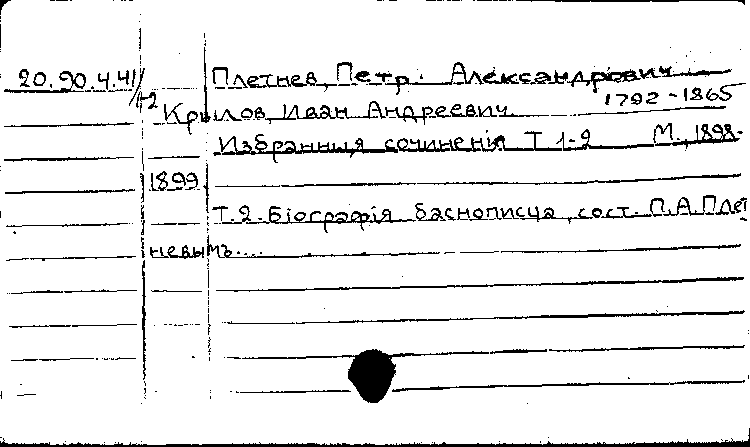 20.90.4.41/42 Плетнев, Петр. Александрович
1792-1865
Крылов, Иван Андреевич.
Избранныя сочиненія Т 1-2 М., 1898-
1899.
Т.2. Біографія баснописца, сост. П.А.Плет
невымъ....